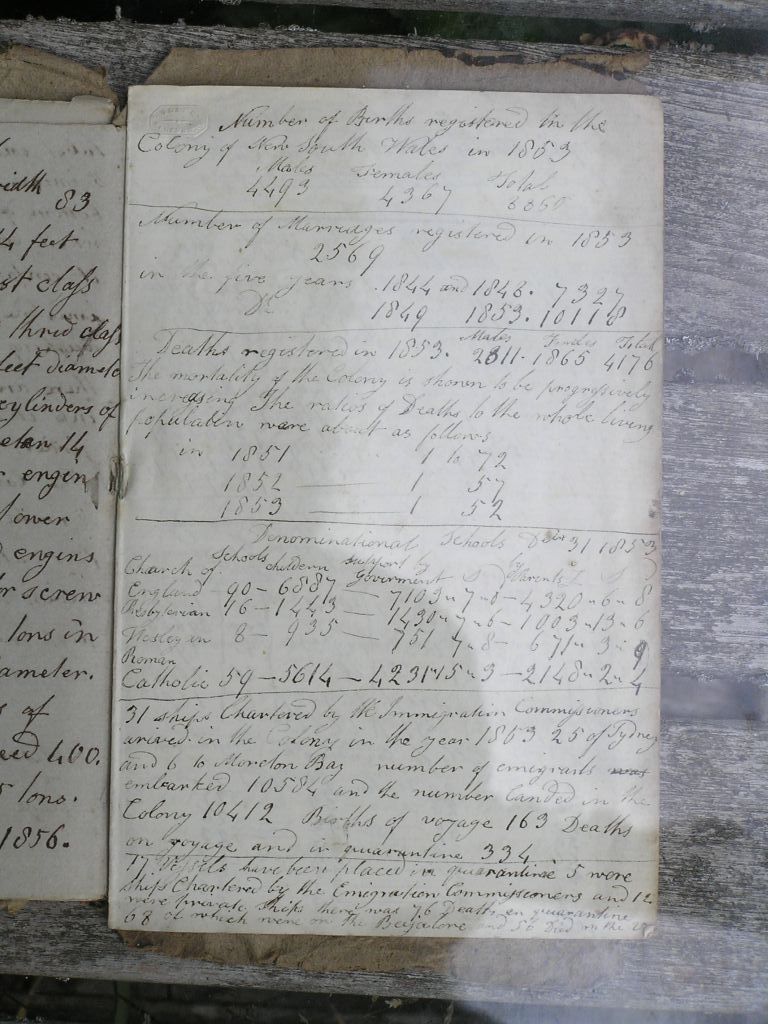 83
feet
class
thred class
feet diamete
cylinders of
14
engin
engins
or screw
tons in
ameter.
of
400.
tons.
1856.
Number of Births registered in the
Colony of New South Wales in 1853
Males Females Total
4493 4367 8860
Number of Marridges registered in 1853
2569
in the five years . 1844 and 1848. 7327
Do 1849 1853. 10118
Deaths registered in 1853. Males Females Total
2311. 1865 4176
The mortality of the Colony is shown to be progresively
increasing The ratios of Deaths to the whole living
population were about as follows
in 1851 1 to 72
1852 — 1 57
1853 — 1 52
Denominational Schools 31 1853
Church of Schools childern support by Goverment by Parents
England 90 – 6887 — 7103 " 7 " 6 – 4320 " 6 " 8
Presbyterian 16 – 1443 — 1430 " 7 " 6 – 1003 " 13 " 6
Wesleyin 8 – 935 — 751 " 7 " 8 – 671 " 3 " 9
Roman
Catholic 59 – 5614 – 4231 " 15 " 3 – 2148 " 2 " 4
31 ships Chartered by the Immigration Commissioners
arived in the Colony in the year 1853 25 of Sydney
and 6 to Moreton Bay number of emigrants was
embarked 10584 and the number Landed in the
Colony 10412 Births of voyage 163 Deaths
on voyage and in quarantine 334
17 Vessels have been placed in quarantine 5 were
ships Chartered by the Emigration Commissioners and 12
were private ships there was 76 Deaths in quarantine
68 of which were on the and 56 Died in the